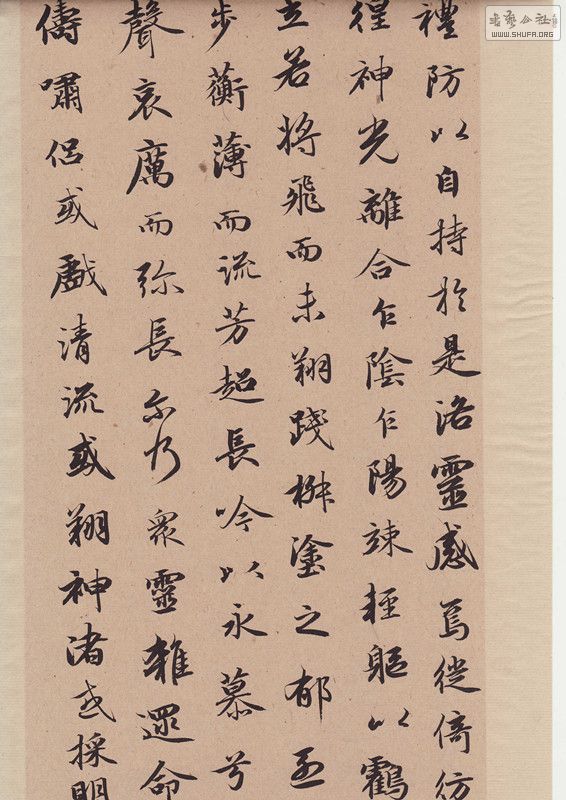 禮防以自持於是洛靈感焉徙倚彷
徨神光離合乍陰乍陽竦輕軀以鶴
立若將飛而未翔踐椒塗之郁
步蘅薄而流芳超長吟以永慕兮
聲哀厲而弥長尔乃衆靈雜遝命
儔嘯侣或戲清流或翔神渚或採明
書藝公社
WWW.SHUFA.ORG